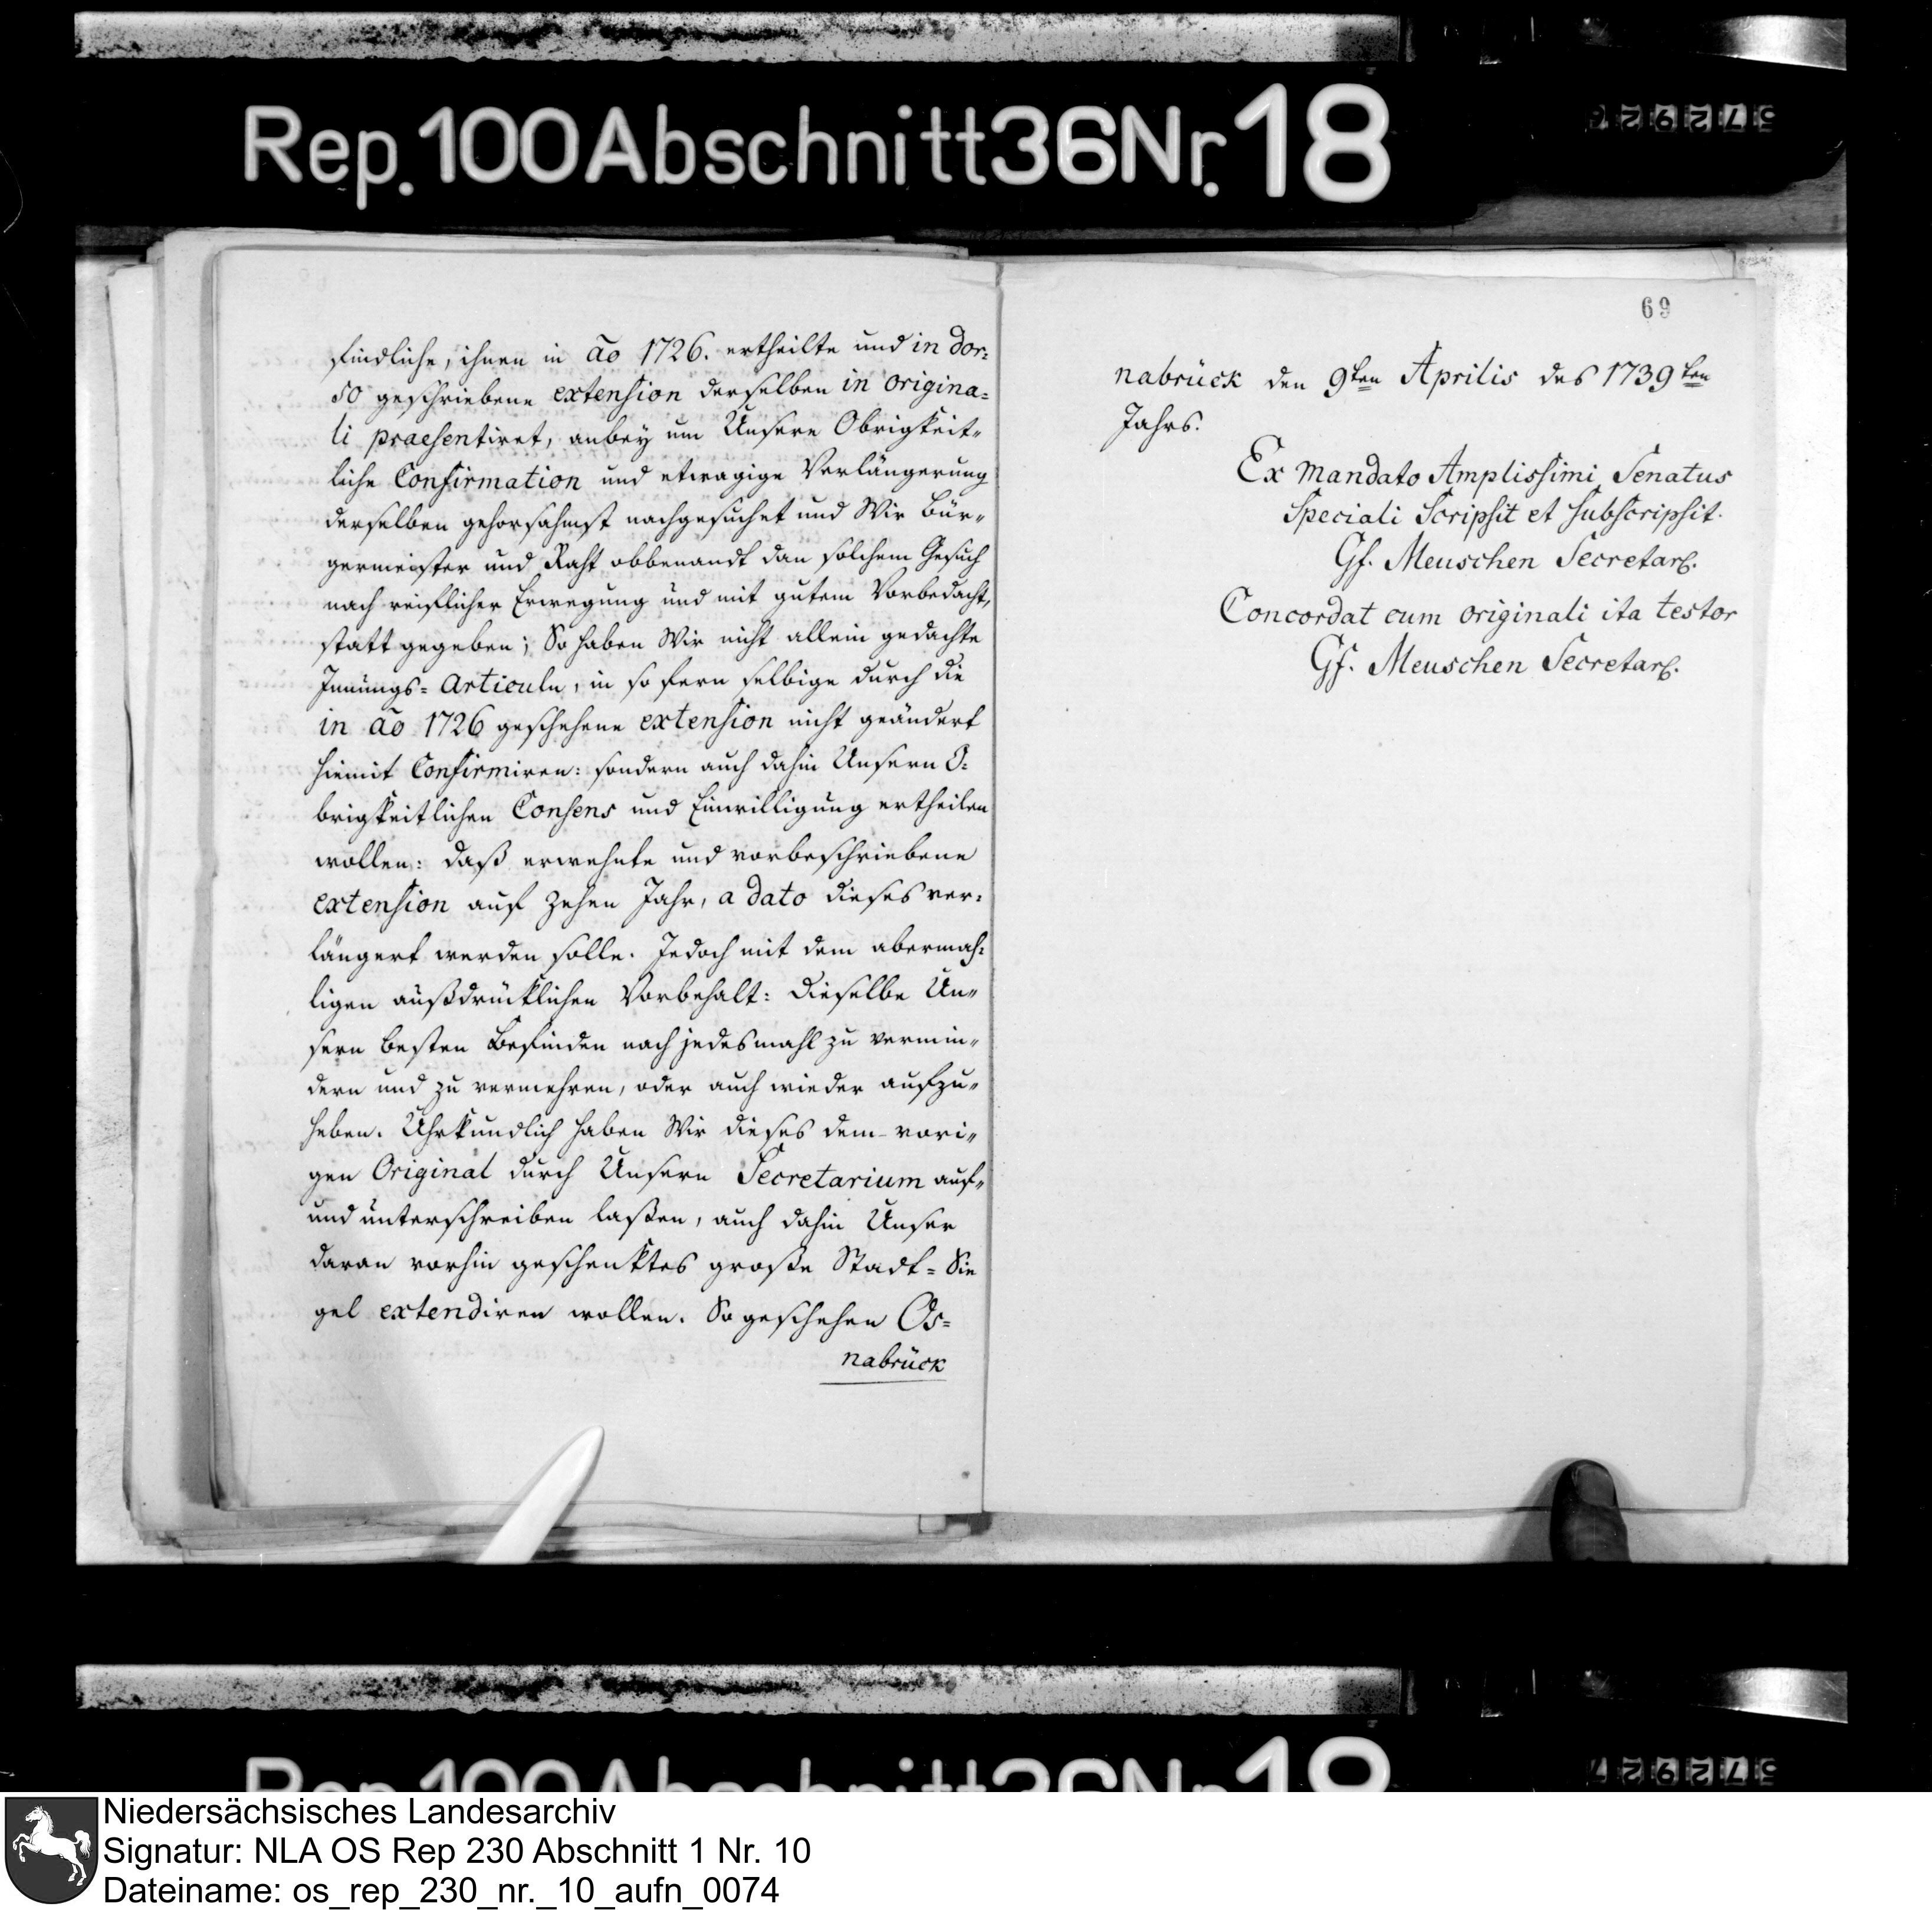 Rep. 100 Abschnitt 36 Nr. 18
findliche, ihnen in ão 1726. ertheilte und in dor-
so geschriebene extension derselben in origina-
li praesentiret, anbey um Unsere Obrigkeit-
liche Confirmation und etwagige Verlängerung
derselben gehorsahmst nachgesuchet und Wir Bür-
germeister und Raht obbenandt dan solchem Gesuch
nach reiflicher Erwegung und mit gutem Vorbedacht,
statt gegeben; So haben Wir nicht allein gedachte
Innungs-Articuln, in so fern selbige durch die
in ão 1726 geschehene extension nicht geändert
hiemit Confirmiren: sondern auch dahin Unsern O-
brigkeitlichen Consens und Einwilligung ertheilen
wollen: daß erwehnte und vorbeschriebene
extension auf zehen Jahr, a dato dieses ver-
längert werden solle. Jedoch mit dem abermah-
ligen außdrücklichen Vorbehalt: dieselbe Un-
sern besten Befinden nach jedesmahl zu vermin-
dern und zu vermehren, oder auch wieder aufzu-
heben. Uhrkundlich haben Wir dieses dem vori-
gen Original durch Unsern Secretarium auf-
und unterschreiben laßen, auch dahin Unser
daran vorhin geschenktes große Stadt-Sie
gel extendiren wollen. So geschehen Os-
nabrück
69
nabrück den 9ten Aprilis des 1739ten
Jahrs.
Ex mandato Amplissimi Senatus
Speciali Scripsit et subscripsit.
Gf. Meuschen Secretar.
Concordat cum originali ita testor
Gf. Meuschen Secretar.
Rep. 100 Abschnitt 36 Nr. 18
Niedersächsisches Landesarchiv
Signatur: NLA OS Rep 230 Abschnitt 1 Nr. 10
Dateiname: os_rep_230_nr._10_aufn_0074